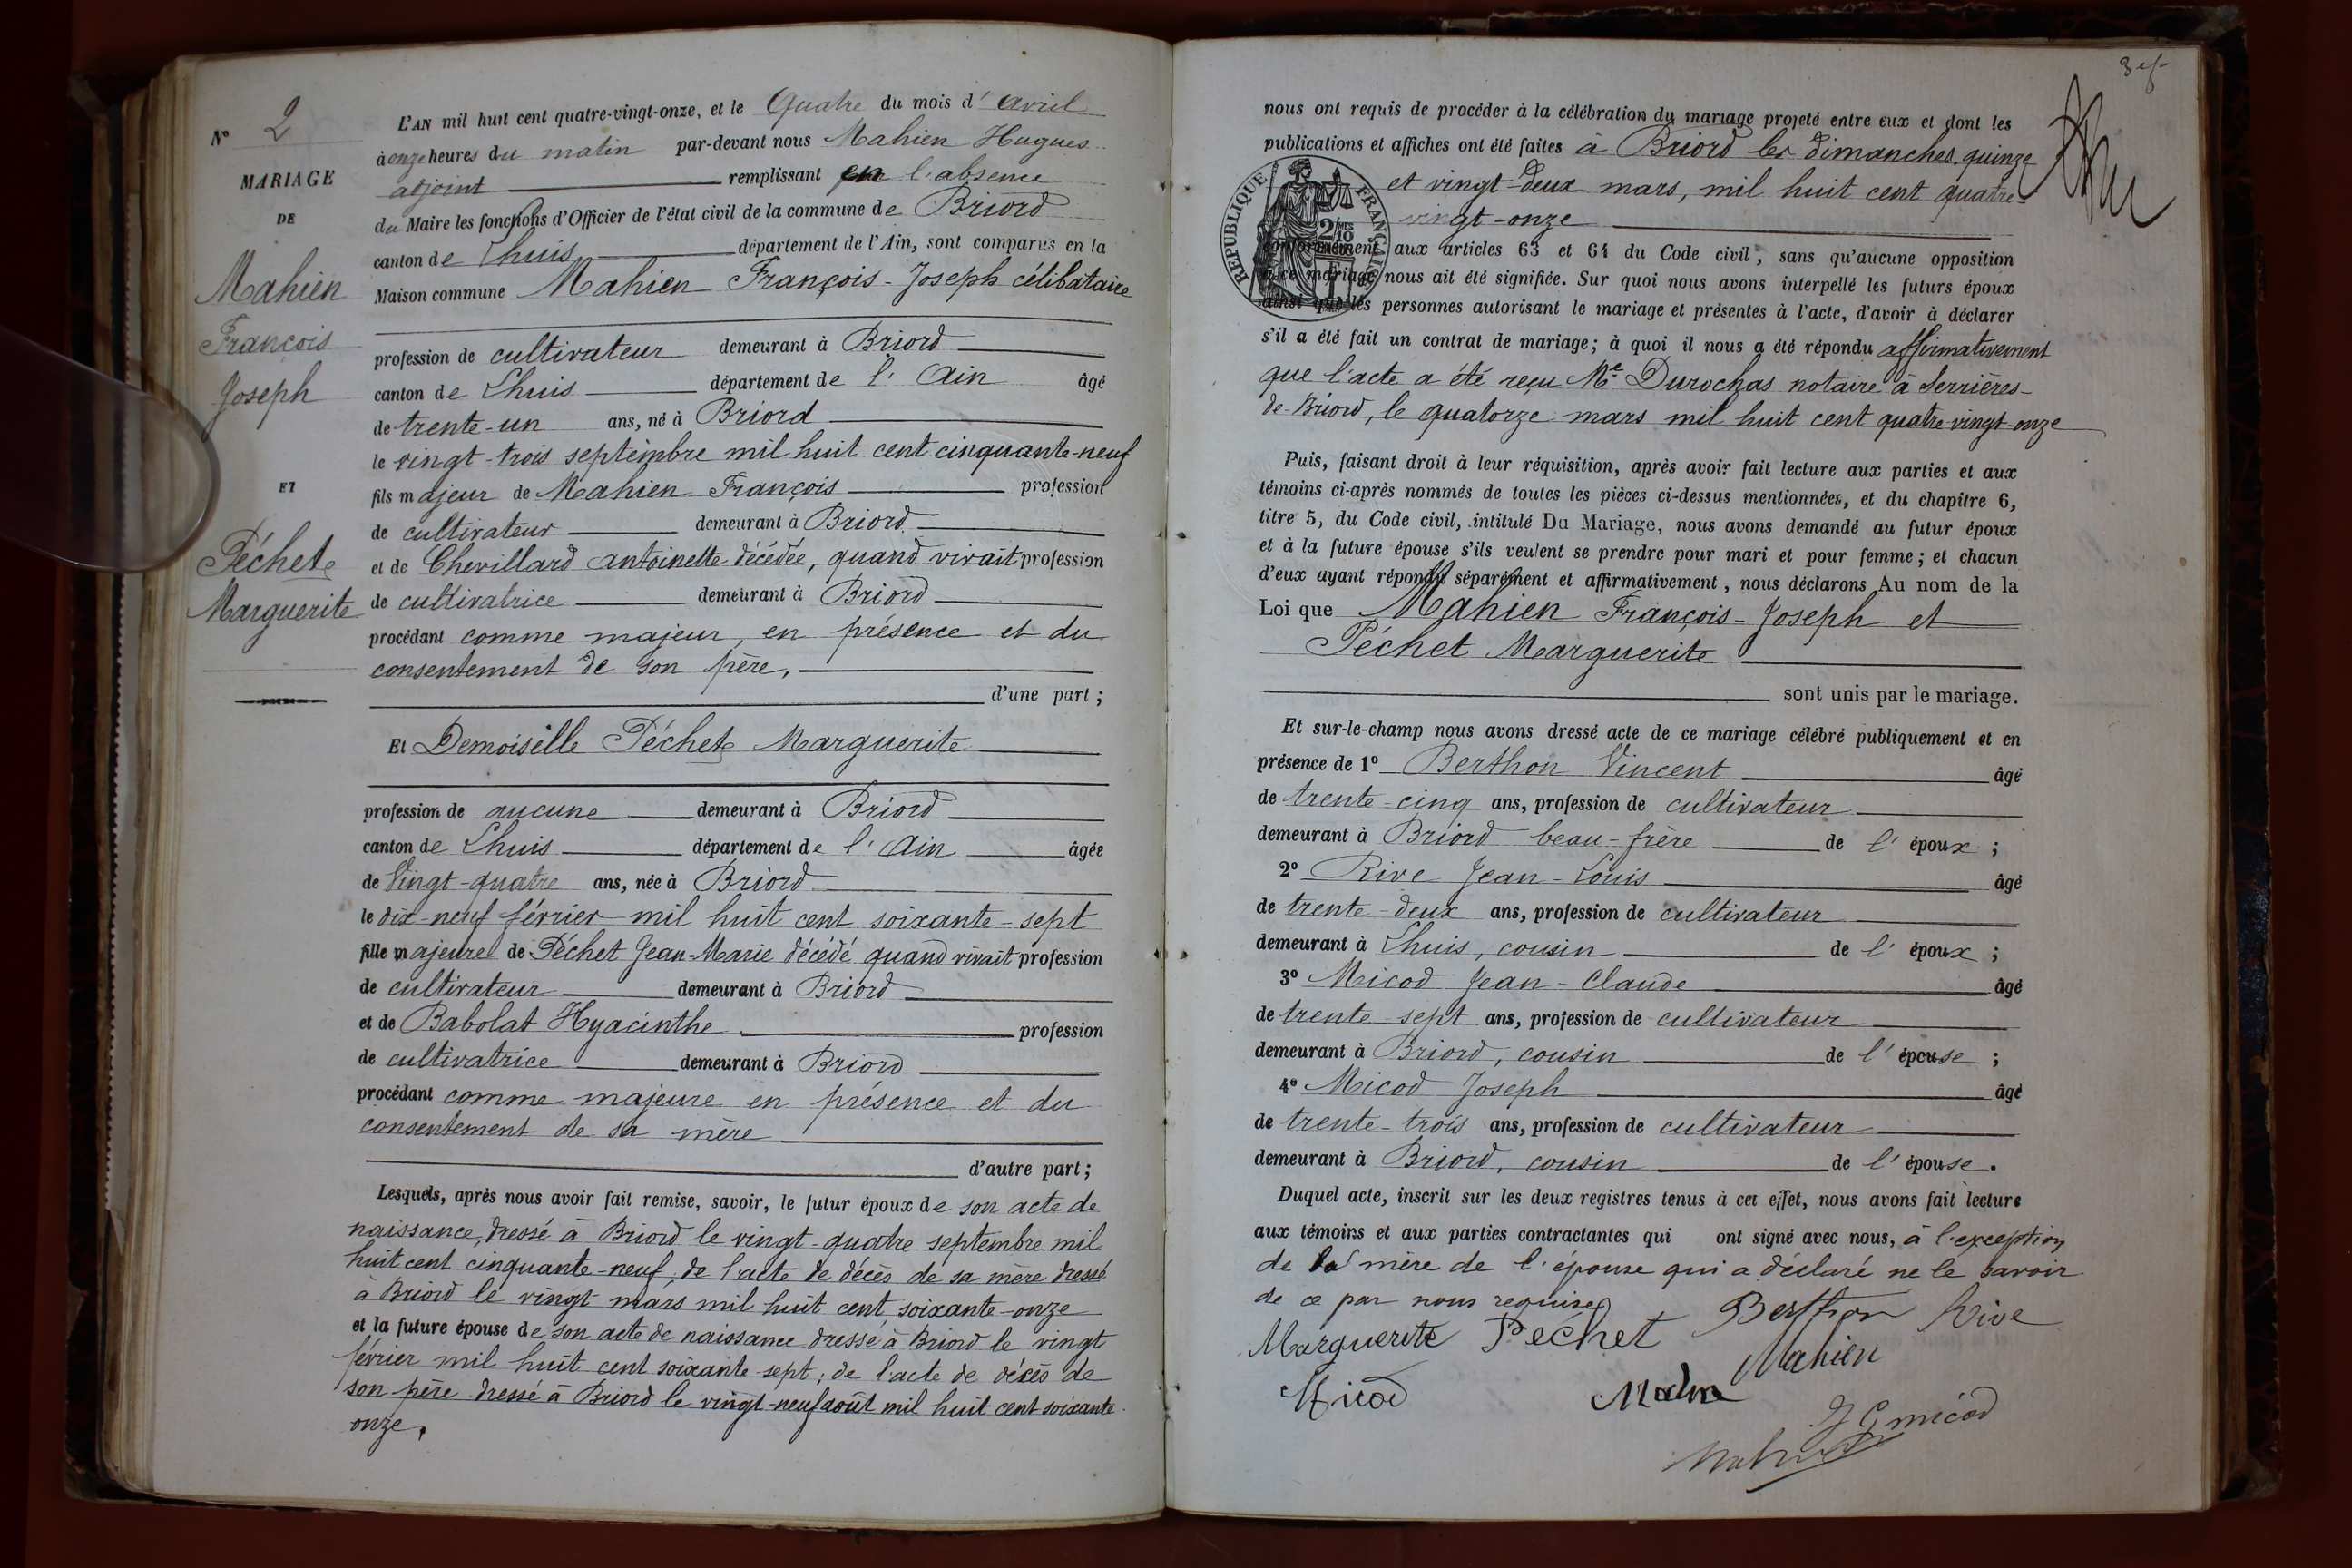 N° 2
MARIAGE
DE
Mahien
François
Joseph
ET
Péchet
Marguerite
L'AN mil huit cent quatre-vingt-onze, et le Quatre du mois d' avril
à onze heures du matin par-devant nous Mahien Hugues
adjoint remplissant en l'absence
du Maire les fonctions d'Officier de l'état civil de la commune de Briord
canton de Lhuis département de l'Ain, sont comparus en la
Maison commune Mahien François-Joseph célibataire
profession de cultivateur demeurant à Briord
canton de Lhuis département de l'Ain âgé
de trente-un ans, né à Briord
le vingt-trois septembre mil huit cent cinquante-neuf
fils majeur de Mahien François profession
de cultivateur demeurant à Briord
et de Chevillard antoinette décédée, quand vivait profession
de cultivatrice demeurant à Briord
procédant comme majeur, en présence et du
consentement de son père,
d'une part ;
Et Demoiselle Péchet Marguerite
profession de aucune demeurant à Briord
canton de Lhuis département de l'Ain âgée
de Vingt-quatre ans, née à Briord
le dix-neuf février mil huit cent soixante-sept
fille majeure de Péchet Jean-Marie décédé quand vivait profession
de cultivateur demeurant à Briord
et de Babolat Hyacinthe profession
de cultivatrice demeurant à Briord
procédant comme majeure en présence et du
consentement de sa mère
d'autre part ;
Lesquels, après nous avoir fait remise, savoir, le futur époux de son acte de
naissance, dressé à Briord le vingt-quatre septembre mil
huit cent cinquante-neuf, de l'acte de décès de sa mère dressé
à Briord le vingt mars mil huit cent soixante-onze
et la future épouse de son acte de naissance dressé à Briord le vingt
février mil huit cent soixante-sept; de l'acte de décès de
son père dressé à Briord le vingt-neuf août mil huit cent soixante-
onze.
nous ont requis de procéder à la célébration du mariage projeté entre eux et dont les
publications et affiches ont été faites à Briord les dimanches quinze
et vingt-deux mars, mil huit cent quatre-
vingt-onze
RÉPUBLIQUE FRANÇAISE
conformément aux articles 63 et 64 du Code civil, sans qu'aucune opposition
à ce mariage nous ait été signifiée. Sur quoi nous avons interpellé les futurs époux
ainsi que les personnes autorisant le mariage et présentes à l'acte, d'avoir à déclarer
s'il a été fait un contrat de mariage ; à quoi il nous a été répondu affirmativement
que l'acte a été reçu Me Durochas notaire à Serrières-
de-Briord, le quatorze mars mil huit cent quatre-vingt-onze
Puis, faisant droit à leur réquisition, après avoir fait lecture aux parties et aux
témoins ci-après nommés de toutes les pièces ci-dessus mentionnées, et du chapitre 6,
titre 5, du Code civil, intitulé Du Mariage, nous avons demandé au futur époux
et à la future épouse s'ils veulent se prendre pour mari et pour femme ; et chacun
d'eux ayant répondu séparément et affirmativement, nous déclarons Au nom de la
Loi que Mahien François-Joseph et
Péchet Marguerite
sont unis par le mariage.
Et sur-le-champ nous avons dressé acte de ce mariage célébré publiquement et en
présence de 1° Berthon Vincent âgé
de trente-cinq ans, profession de cultivateur
demeurant à Briord beau-frère de l'époux ;
2° Rive Jean-Louis âgé
de trente-deux ans, profession de cultivateur
demeurant à Lhuis, cousin de l'époux ;
3° Micod Jean-Claude âgé
de trente sept ans, profession de cultivateur
demeurant à Briord, cousin de l'épouse ;
4° Micod Joseph âgé
de trente-trois ans, profession de cultivateur
demeurant à Briord, cousin de l'épouse.
Duquel acte, inscrit sur les deux registres tenus à cet effet, nous avons fait lecture
aux témoins et aux parties contractantes qui ont signé avec nous, à l'exception
de la mère de l'épouse qui a déclaré ne le savoir
de ce par nous requise
Marguerite Péchet Berthon Rive
Mahien
Micod
J C micod